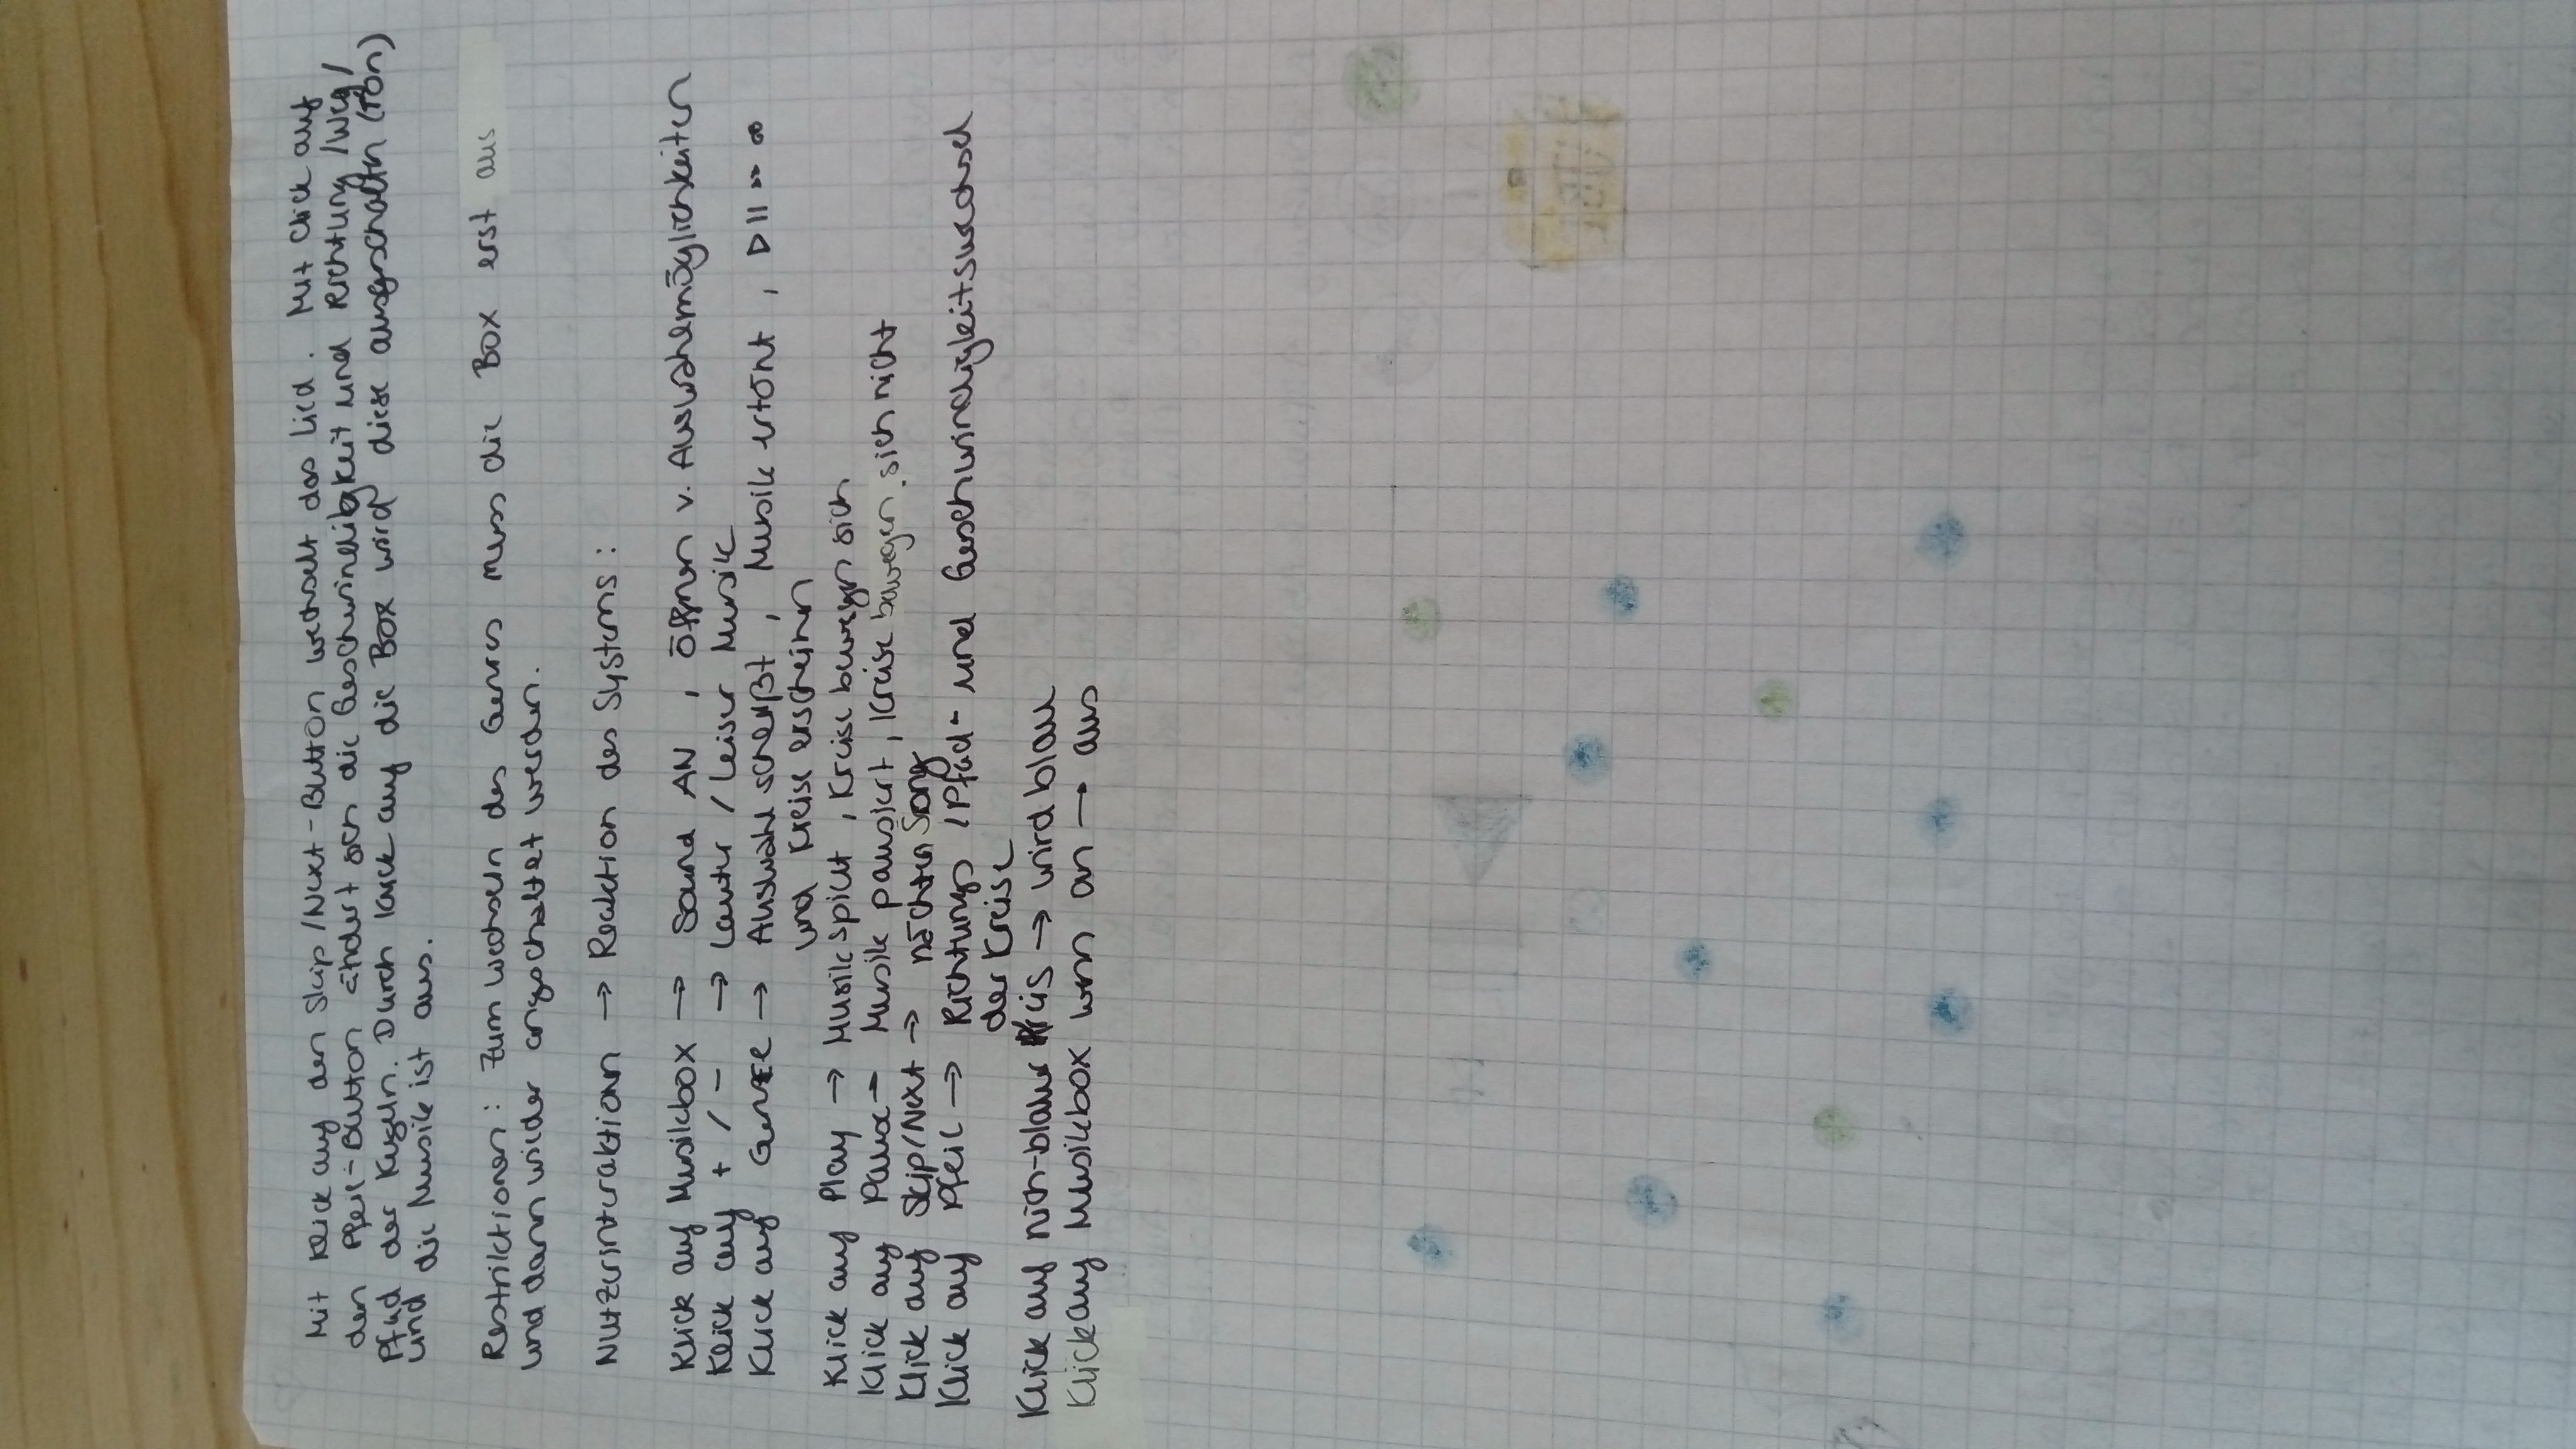 Mit Klick auf den Skip/Next-Button wechselt das Lied. Mit Click auf
den Pfeil-Button ändert sich die Geschwindigkeit und Richtung/Weg/
Pfad der Kugeln. Durch Klick auf die Box wird diese ausgeschalten (Ton)
und die Musik ist aus.
Restriktionen: Zum Wechseln des Genres muss die Box erst aus
und dann wieder angeschaltet werden.
Nutzerinteraktion → Reaktion des Systems:
Klick auf Musikbox → Sound AN, öffnen v. Auswahlmöglichkeiten
Klick auf + / - → Lauter / leiser Musik
Klick auf Genre → Auswahl schließt, Musik ertönt, ▷ ||
und Kreise erscheinen
Klick auf Play → Musik spielt, Kreise bewegen sich
Klick auf Pause - Musik pausiert, Kreise bewegen sich nicht
Klick auf Skip/Next → nächsten Song
Klick auf Pfeil → Richtungs /Pfad- und Geschwindigkeitswechsel
der Kreise
Klick auf nich-blauer Kreis → wird blau
Klick auf Musikbox wenn an → aus